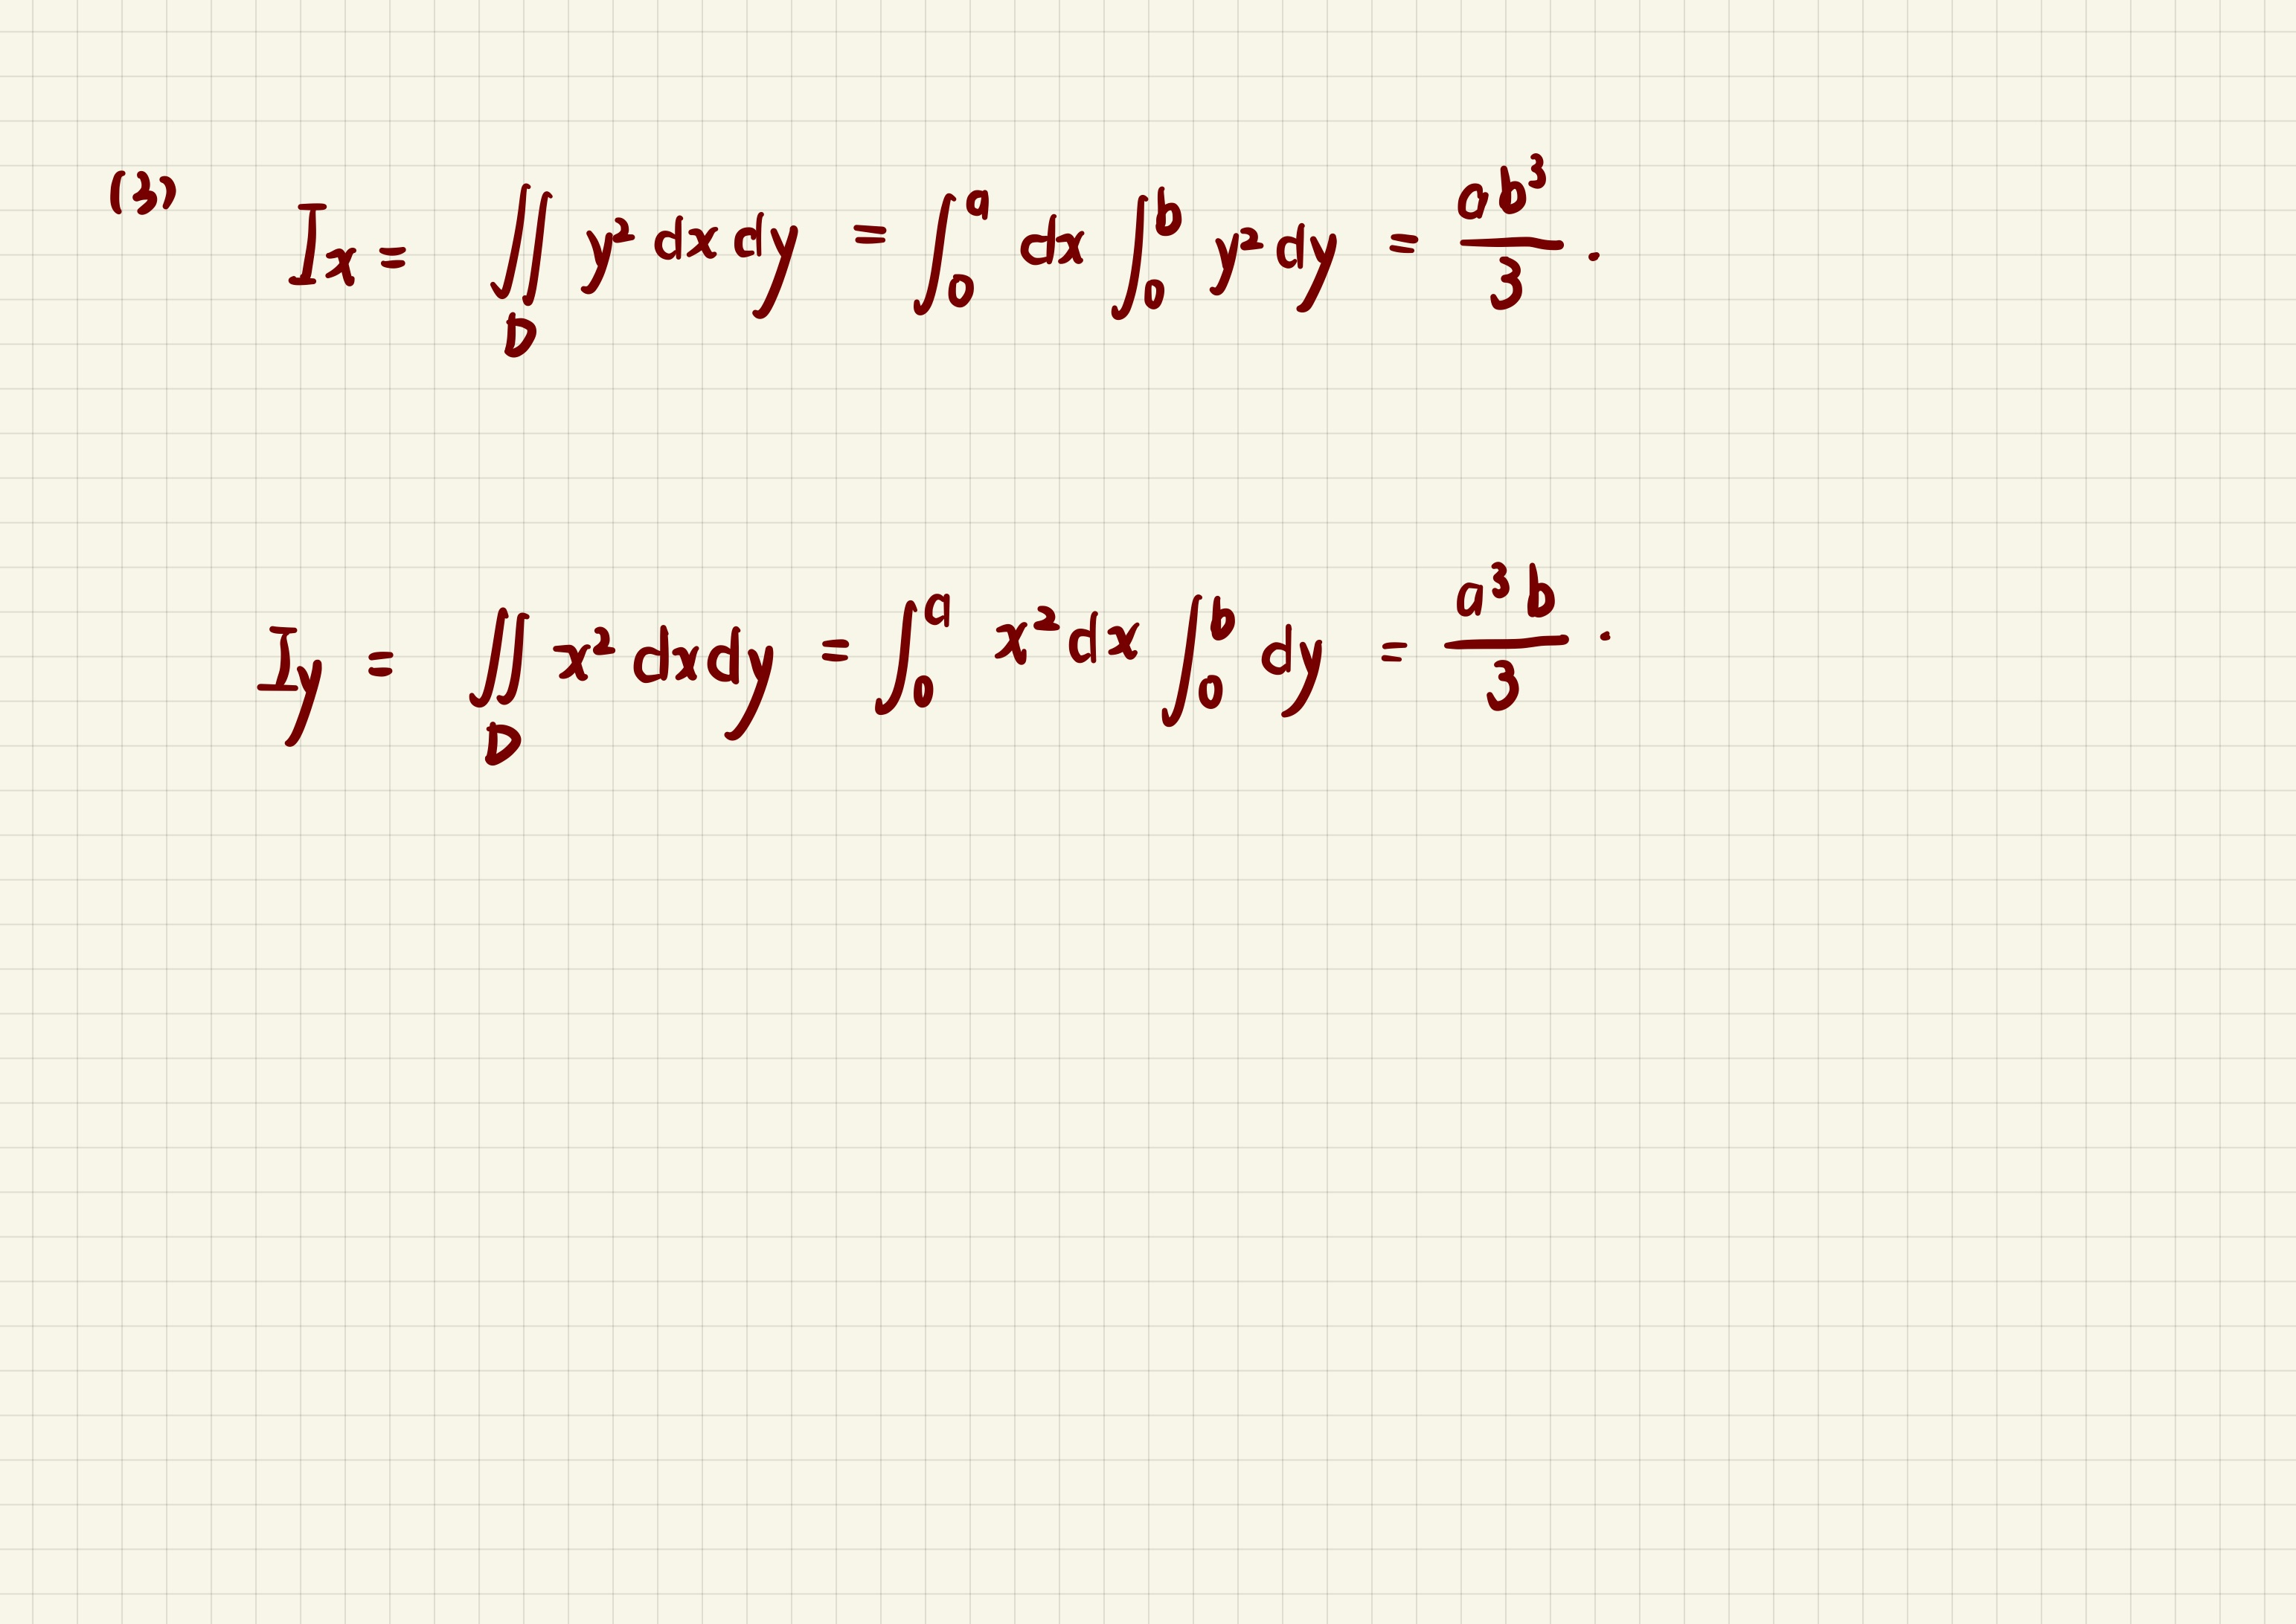 (3) I_x = ∬_D y² dx dy = ∫_0^a dx ∫_0^b y² dy = ab³/3 .
I_y = ∬_D x² dxdy = ∫_0^a x² dx ∫_0^b dy = a³b/3 .